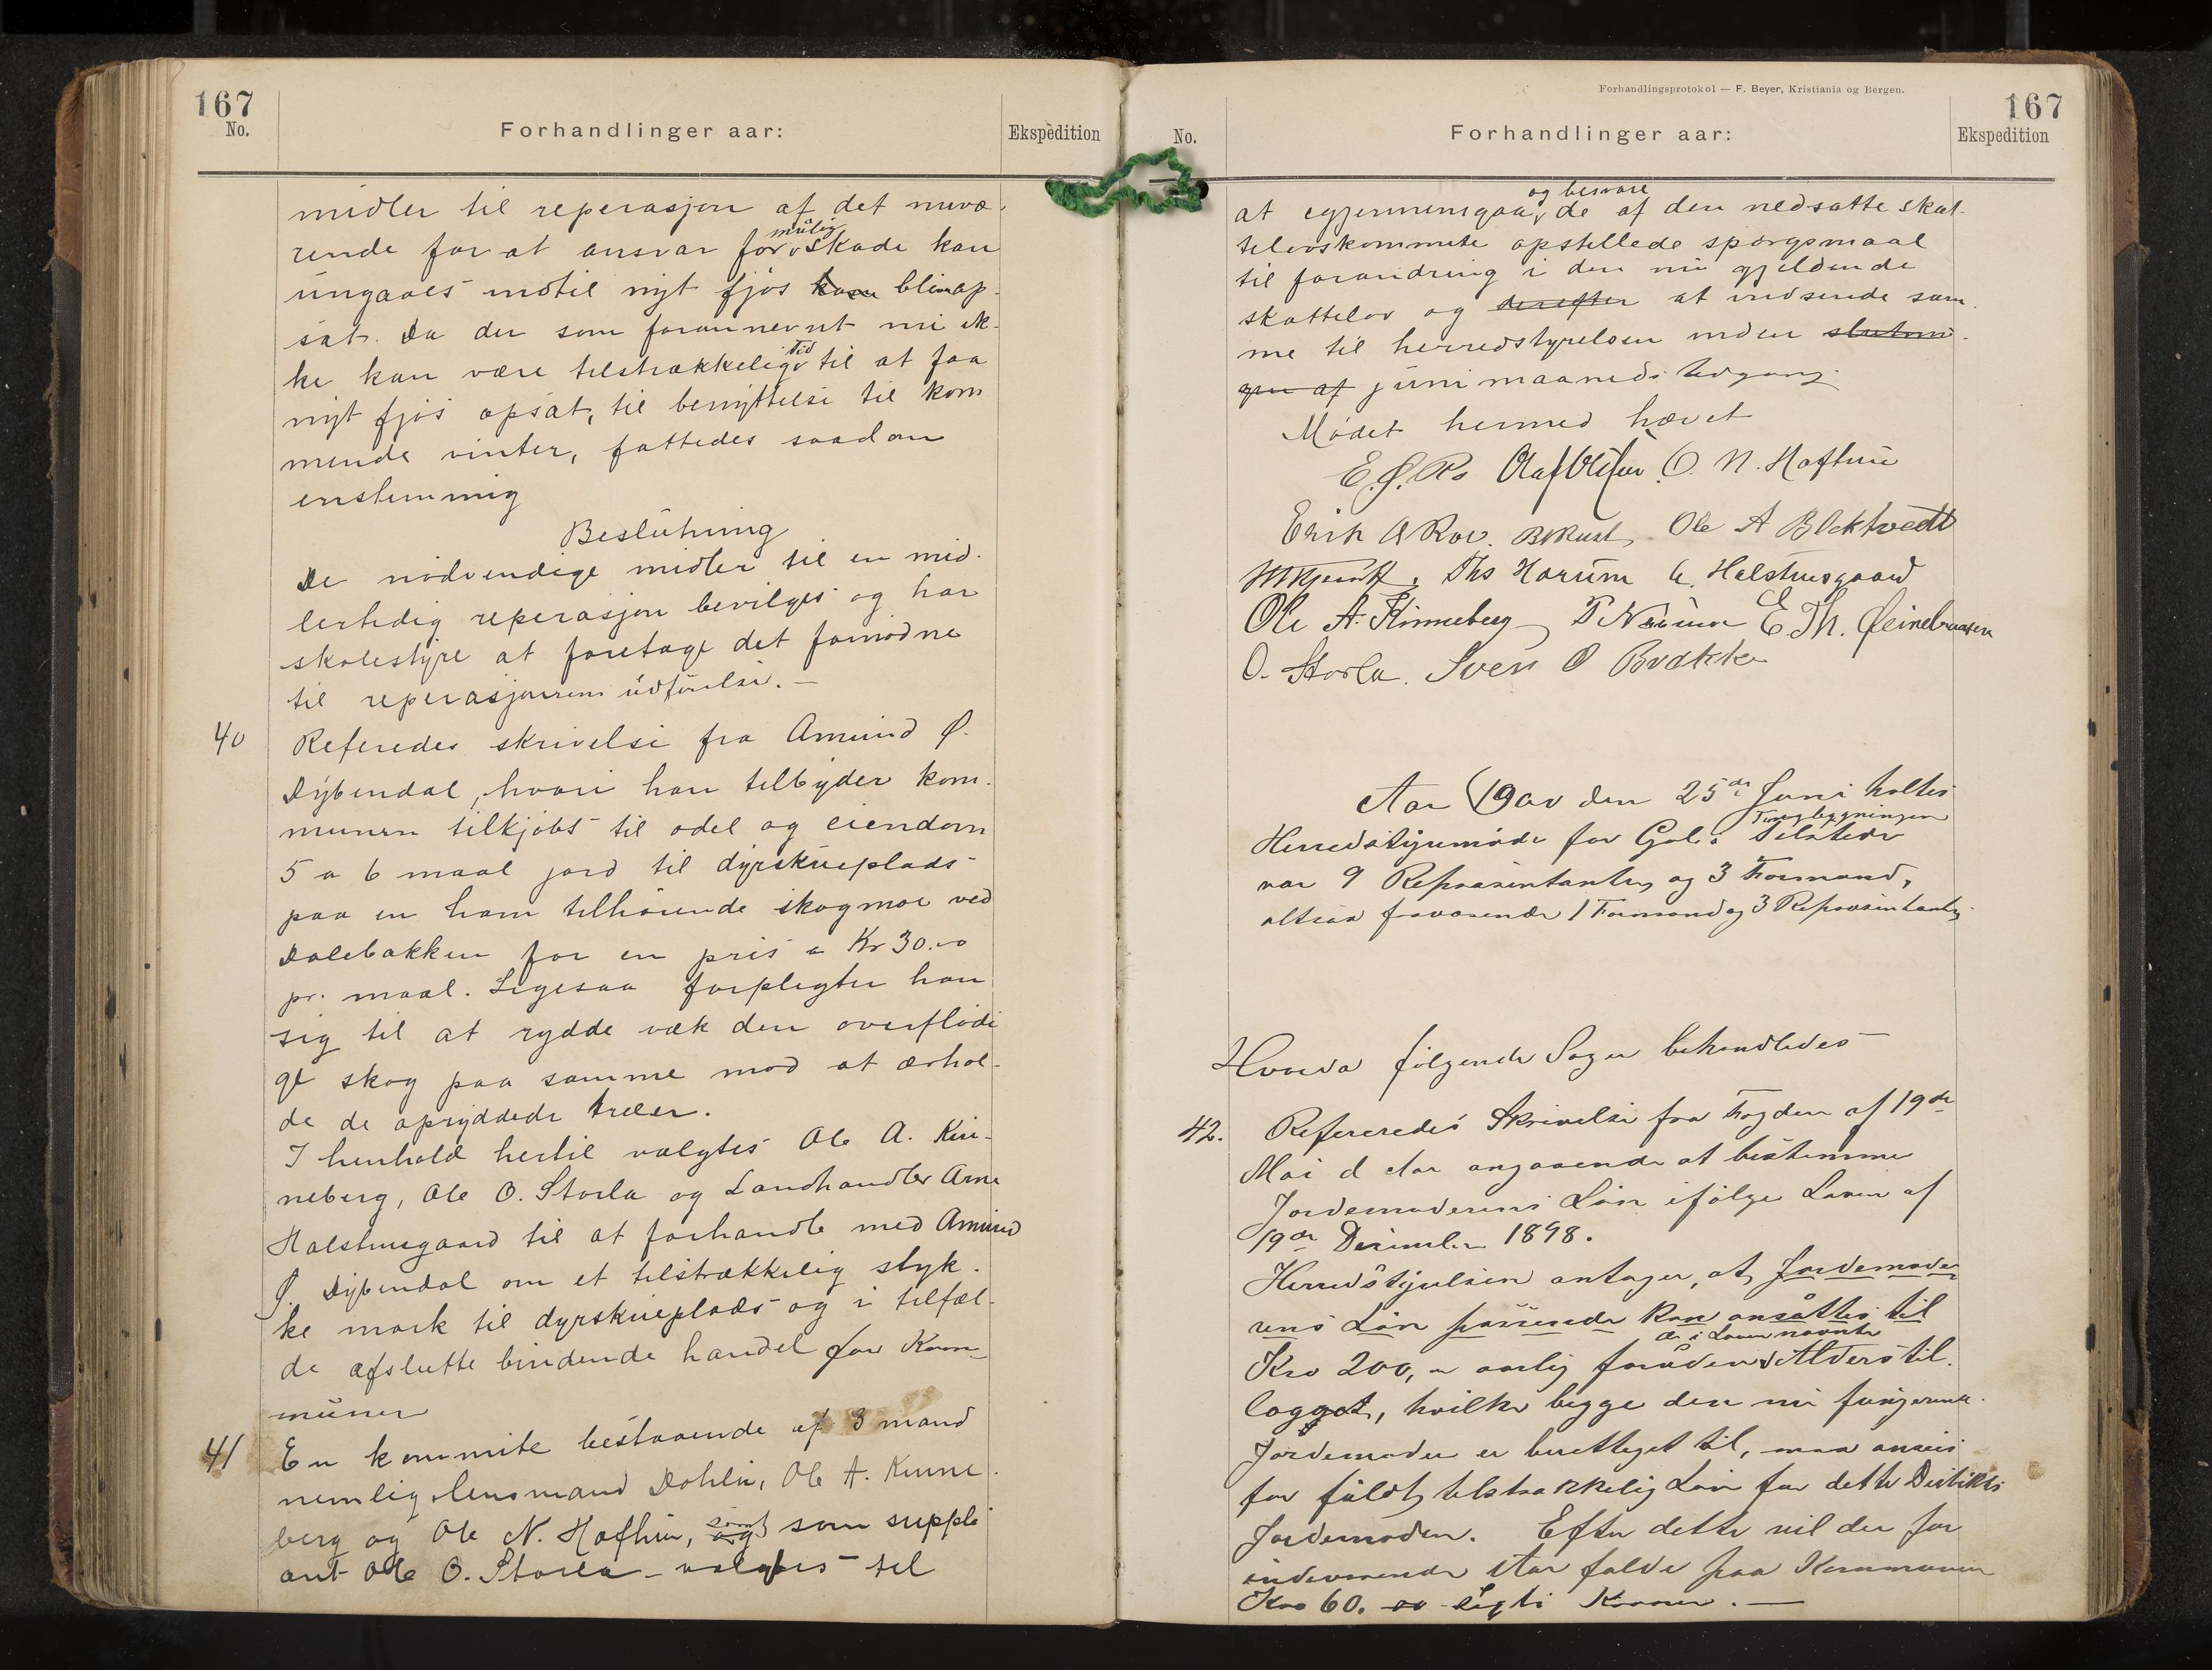 167
No.
Forhandlinger aar:
Ekspedition
midler til reperasjon af det nuvæ-
rende for at ansvar for mulig skade kan
undgaaes indtil nyt fjøs kan blive op-
sat. Da der som forannevnt nu ik-
ke kan være tilstrækkelig Tid til at faa
nyt fjøs opsat, til benyttelse til kom
mende vinter, fattedes saadan
enstemmig
Beslutning
De nødvendige midler til en mid-
lertidig reperasjon bevilges og har
skolestyre at foretage det fornødne
til reperasjonens udførelse. —
40
Referedes skrivelse fra Amund Ø.
Dybendal, hvori han tilbyder kom-
munen tilkjøbs til odel og eiendom
5 a 6 maal jord til dyrskueplads
paa en ham tilhørende skogmoe ved
Dalebakken for en pris a Kr 30.00
pr. maal. Ligesaa forpligter han
sig til at rydde væk den overflødi
ge skog paa samme mod at erhol-
de de opryddede træer.
I henhold hertil valgtes Ole A. Kin-
neberg, Ole O. Storla og Landhandler Arne
Halstensgaard til at forhandle med Amund
Ø. Dybendal om et tilstrækkelig styk-
ke mark til dyrskueplads og i tilfæl-
de afslutte bindende handel for Kom-
munen
41
En kommite bestaaende af 3 mand
nemlig lensmand Dohlen, Ole A. Kinne-
berg og Ole N. Hafthun, og samt som supple
ant Ole O. Storla - valgtes til
Forhandlingsprotokol — F. Beyer, Kristiania og Bergen.
167
No.
Forhandlinger aar:
Ekspedition
at gjennemgaa og besvare de af den nedsatte skat-
telovskommite opstillede spørgsmaal
til forandring i den nu gjeldende
skattelov og derefter at indsende sam-
me til herredstyrelsen inden slutnin-
gen af juni maaneds Udgang
Mødet hermed hævet
E. Ø. Ro Olaf O. N. Hafthun
Erik A Roe. B Rust, Ole A Blektvedt
Ths Harum A. Halstensgaard
Ole A. Kinneberg P Nærum E. Th. Øeinebraaten
O. Storla. Sven O Brække
Aar 1900 den 25de Juni holtes
Herredstyremøde for Gol i Tingbygningen Tilstede
var 9 Repræsentanter og 3 Formænd,
altsaa fraværende 1 Formand og 3 Repræsentanter
Hvorda følgende Sager behandledes
42.
Refereredes Skrivelse fra Fogden af 19de
Mai d Aar angaaende at bestemme
Jordemoderens Løn ifølge Loven af
19de December 1898.
Herredstyrelsen antager, at Jordemode-
rens Løn passende kan ansættes til
Kro 200,00 aarlig foruden de i Loven nævnte Alderstil-
lægget, hvilke begge den nu fungerende
Jordemoder er berettiget til, maa ansees
for fuldt tilstrækkelig Løn for dette Distrikts
Jordemoder. Efter dette vil der for
indeværende Aar falde paa Kommunen
Kro 60.00 sexti Kroner. —